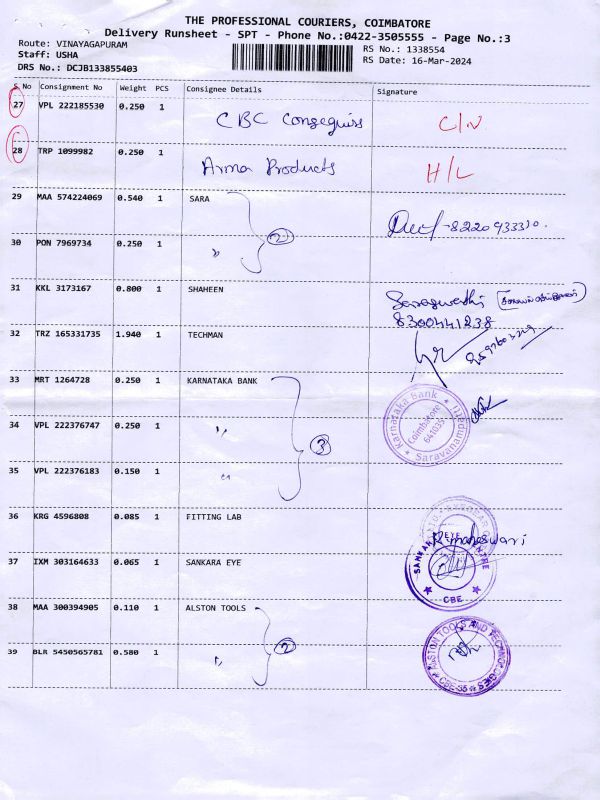 THE PROFESSIONAL COURIERS, COIMBATORE
Delivery Runsheet - SPT - Phone No.:0422-3505555 - Page No.:3
Route: VINAYAGAPURAM
Staff: USHA
DRS No.: DCJB133855403
RS No.: 1338554
RS Date: 16-Mar-2024
S No Consignment No Weight PCS Consignee Details Signature
27 VPL 222185530 0.250 1 CBC C/N
28 TRP 1099982 0.250 1 Arma Products H/L
29 MAA 574224069 0.540 1 SARA 2 8220933310.
30 PON 7969734 0.250 1 "
31 KKL 3173167 0.800 1 SHAHEEN
8300441238
32 TRZ 165331735 1.940 1 TECHMAN
33 MRT 1264728 0.250 1 KARNATAKA BANK
34 VPL 222376747 0.250 1 " 3
35 VPL 222376183 0.150 1 "
Karnataka Bank
Coimbatore
641035
36 KRG 4596808 0.085 1 FITTING LAB
37 IXM 303164633 0.065 1 SANKARA EYE
CBE
38 MAA 300394905 0.110 1 ALSTON TOOLS 2
39 BLR 5450565781 0.580 1 "
ALSTON TOOLS AND TECHNOLOGIES
CBE-35